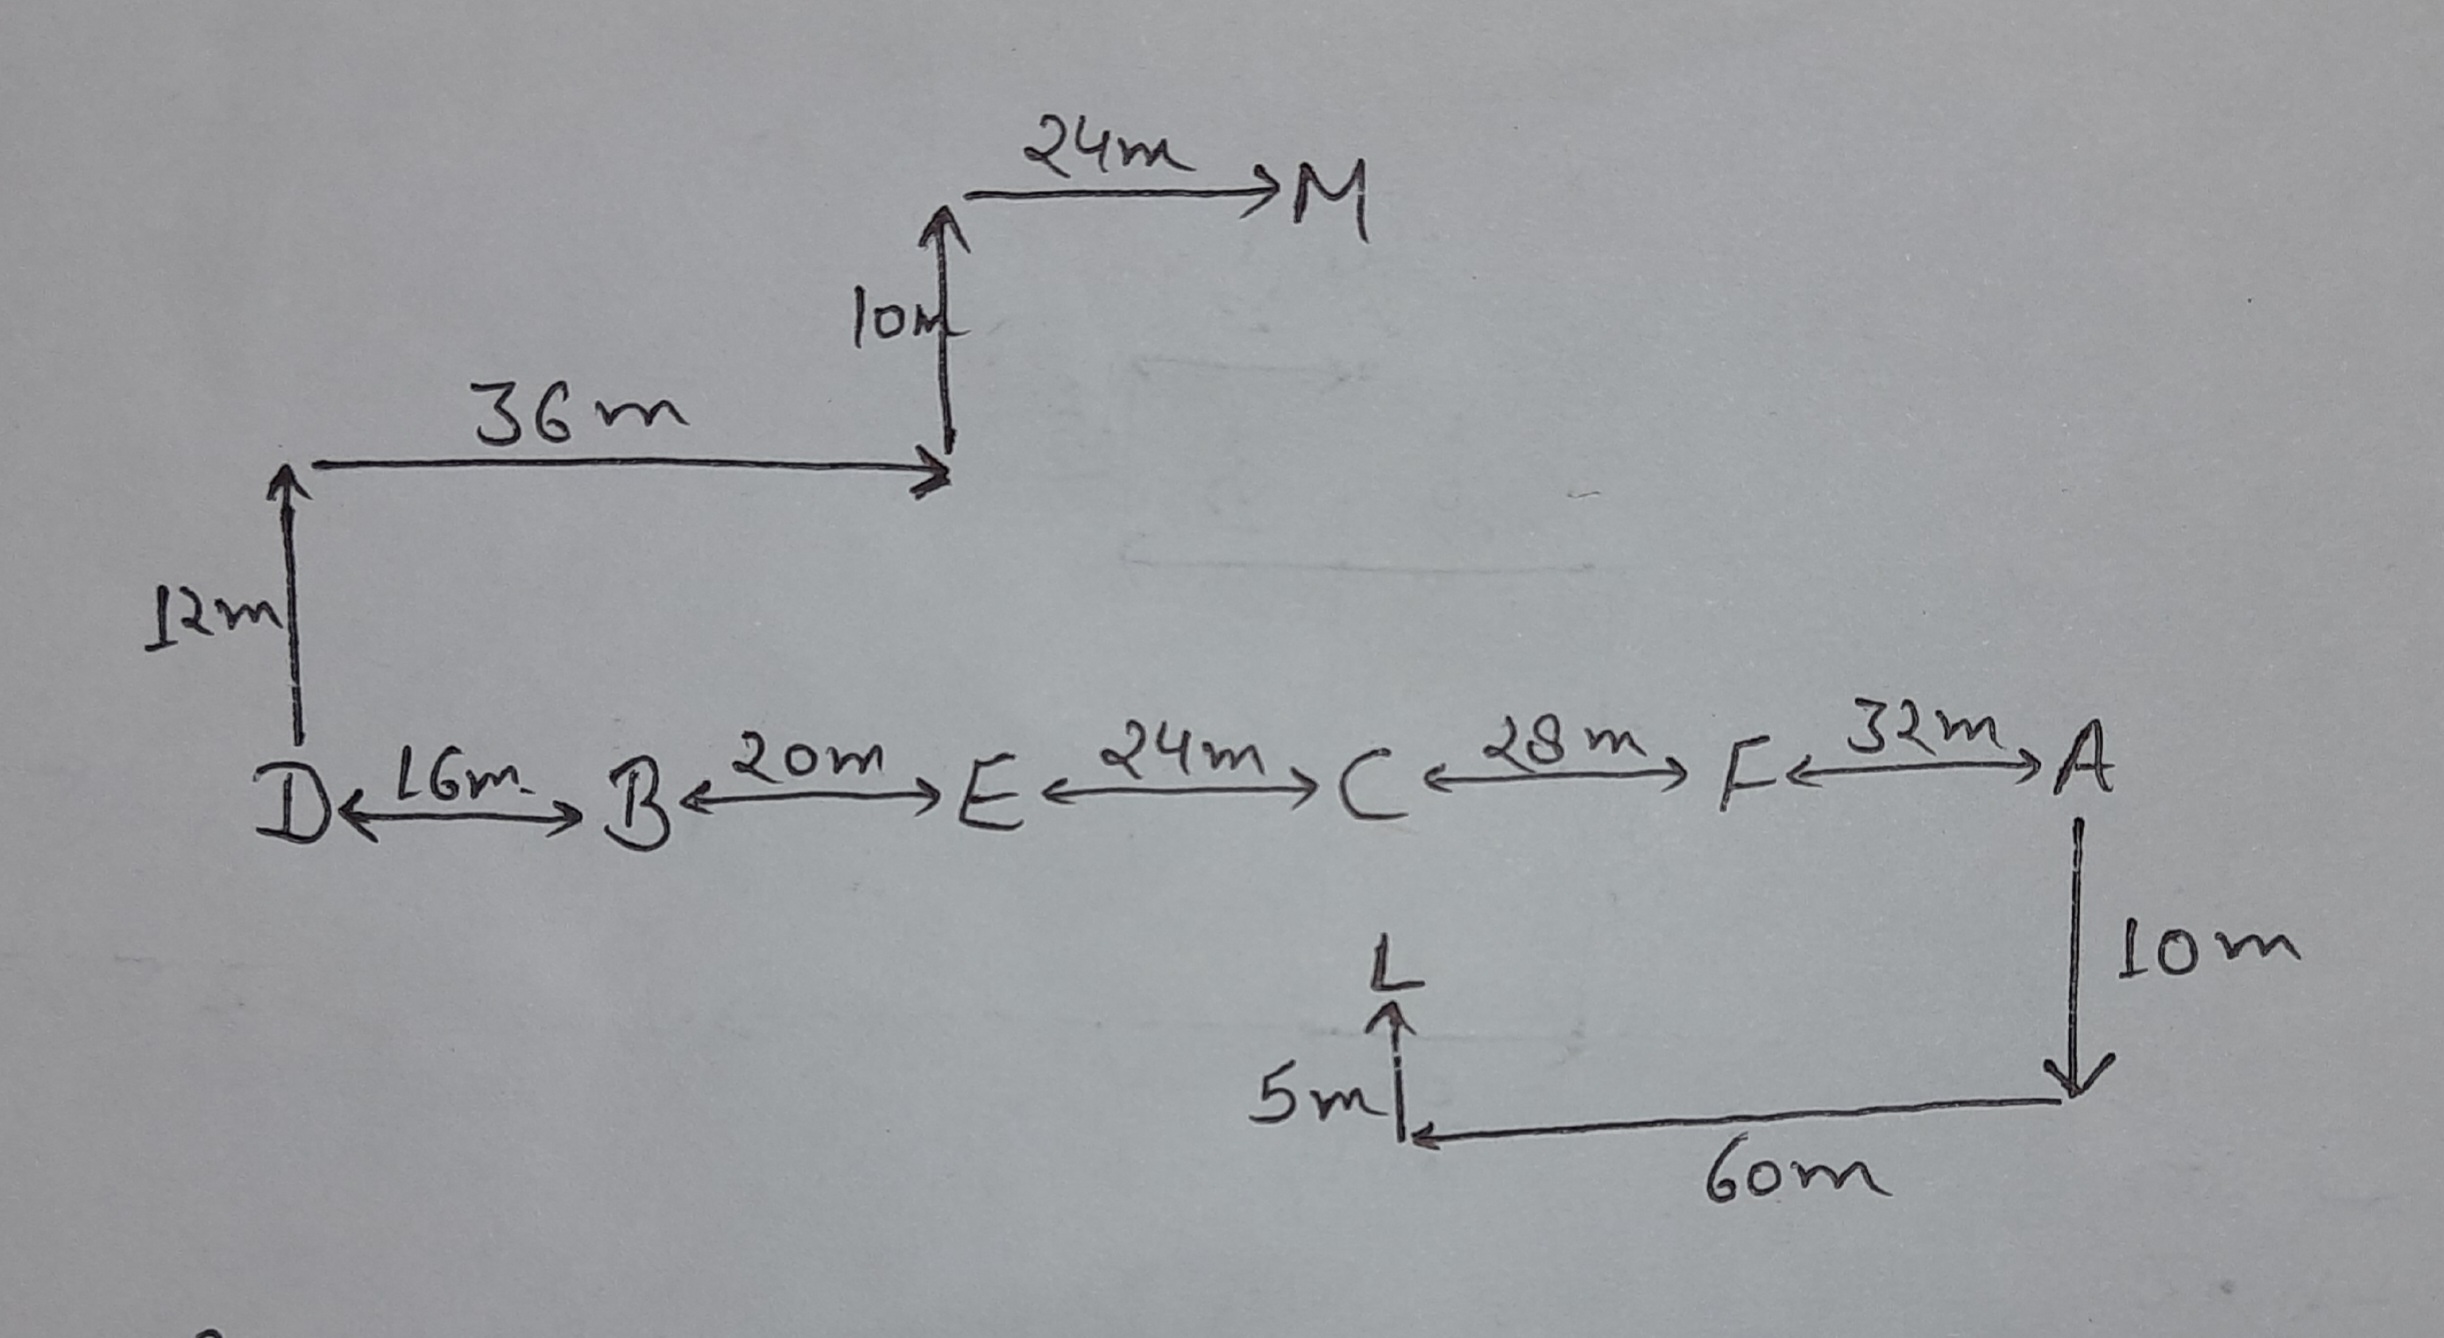 24m
M
10m
36m
12m
D 16m B 20m E 24m C 28m F 32m A
10m
L
5m
60m